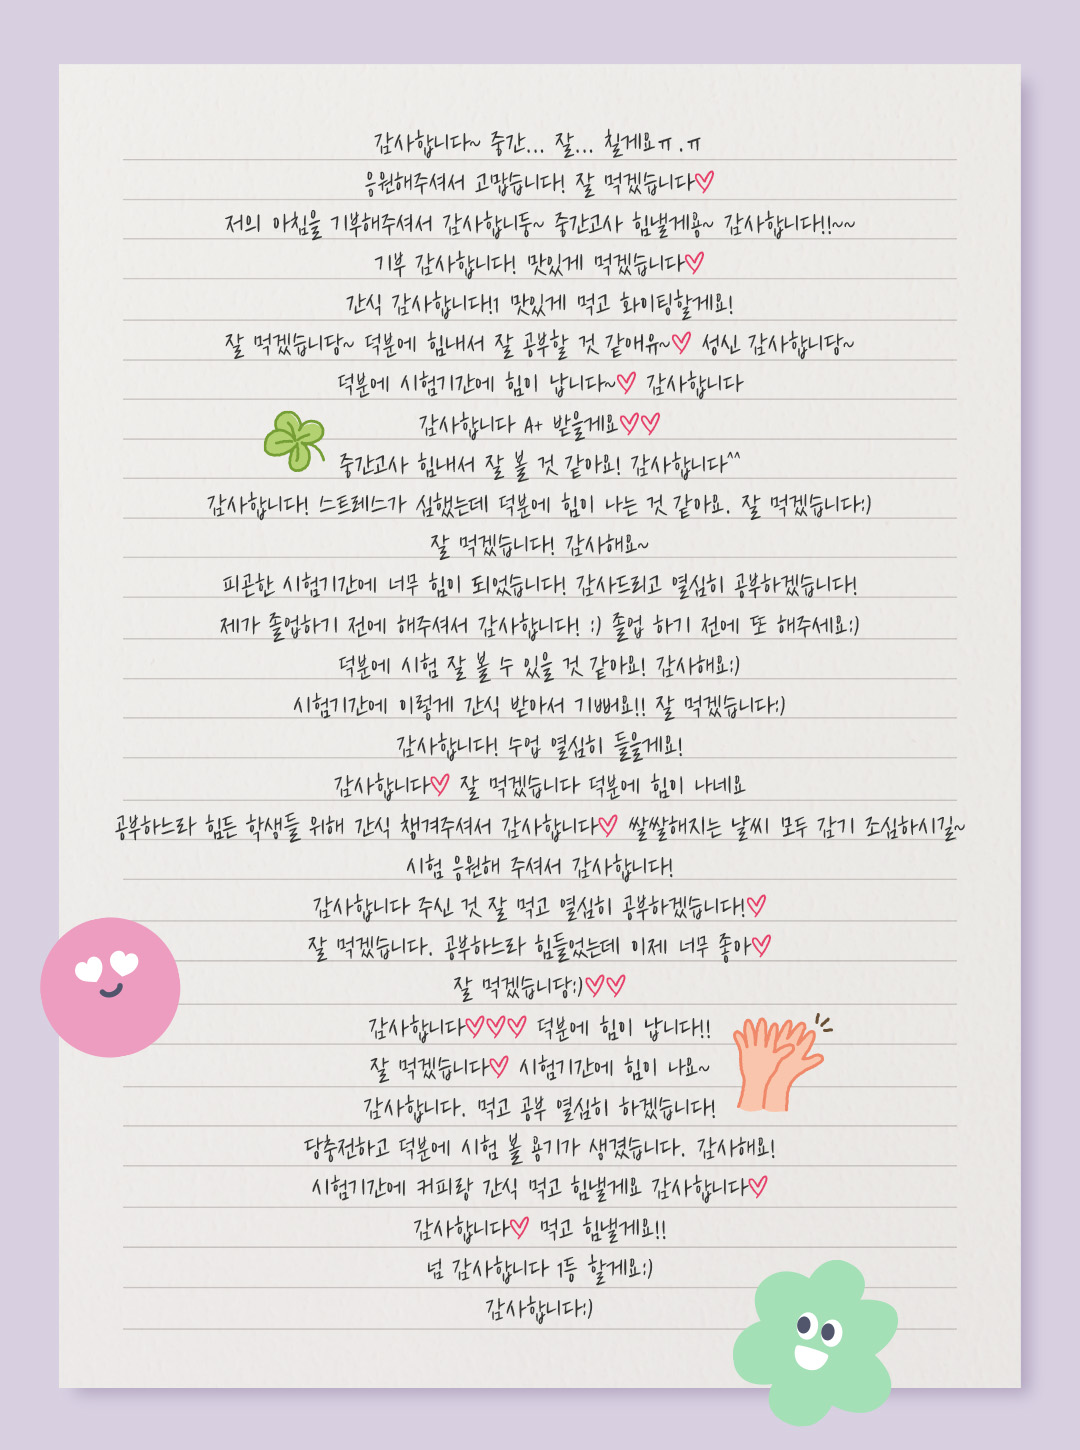 감사합니다~ 중간... 잘... 칠게요ㅠ.ㅠ
응원해주셔서 고맙습니다! 잘 먹겠습니다♡
저의 아침을 기부해주셔서 감사합니둥~ 중간고사 힘낼게용~ 감사합니다!!~~
기부 감사합니다! 맛있게 먹겠습니다♡
간식 감사합니다!1 맛있게 먹고 화이팅할게요!
잘 먹겠습니당~ 덕분에 힘내서 잘 공부할 것 같애유~♡ 성신 감사합니당~
덕분에 시험기간에 힘이 납니다~♡ 감사합니다
감사합니다 A+ 받을게요♡♡
중간고사 힘내서 잘 볼 것 같아요! 감사합니다^^
감사합니다! 스트레스가 심했는데 덕분에 힘이 나는 것 같아요. 잘 먹겠습니다:)
잘 먹겠습니다! 감사해요~
피곤한 시험기간에 너무 힘이 되었습니다! 감사드리고 열심히 공부하겠습니다!
제가 졸업하기 전에 해주셔서 감사합니다! :) 졸업 하기 전에 또 해주세요:)
덕분에 시험 잘 볼 수 있을 것 같아요! 감사해요:)
시험기간에 이렇게 간식 받아서 기뻐요!! 잘 먹겠습니다:)
감사합니다! 수업 열심히 들을게요!
감사합니다♡ 잘 먹겠습니다 덕분에 힘이 나네요
공부하느라 힘든 학생들 위해 간식 챙겨주셔서 감사합니다♡ 쌀쌀해지는 날씨 모두 감기 조심하시길~
시험 응원해 주셔서 감사합니다!
감사합니다 주신 것 잘 먹고 열심히 공부하겠습니다!♡
잘 먹겠습니다. 공부하느라 힘들었는데 이제 너무 좋아♡
잘 먹겠습니당:)♡♡
감사합니다♡♡♡ 덕분에 힘이 납니다!!
잘 먹겠습니다♡ 시험기간에 힘이 나요~
감사합니다. 먹고 공부 열심히 하겠습니다!
당충전하고 덕분에 시험 볼 용기가 생겼습니다. 감사해요!
시험기간에 커피랑 간식 먹고 힘낼게요 감사합니다♡
감사합니다♡ 먹고 힘낼게요!!
넘 감사합니다 1등 할게요:)
감사합니다:)